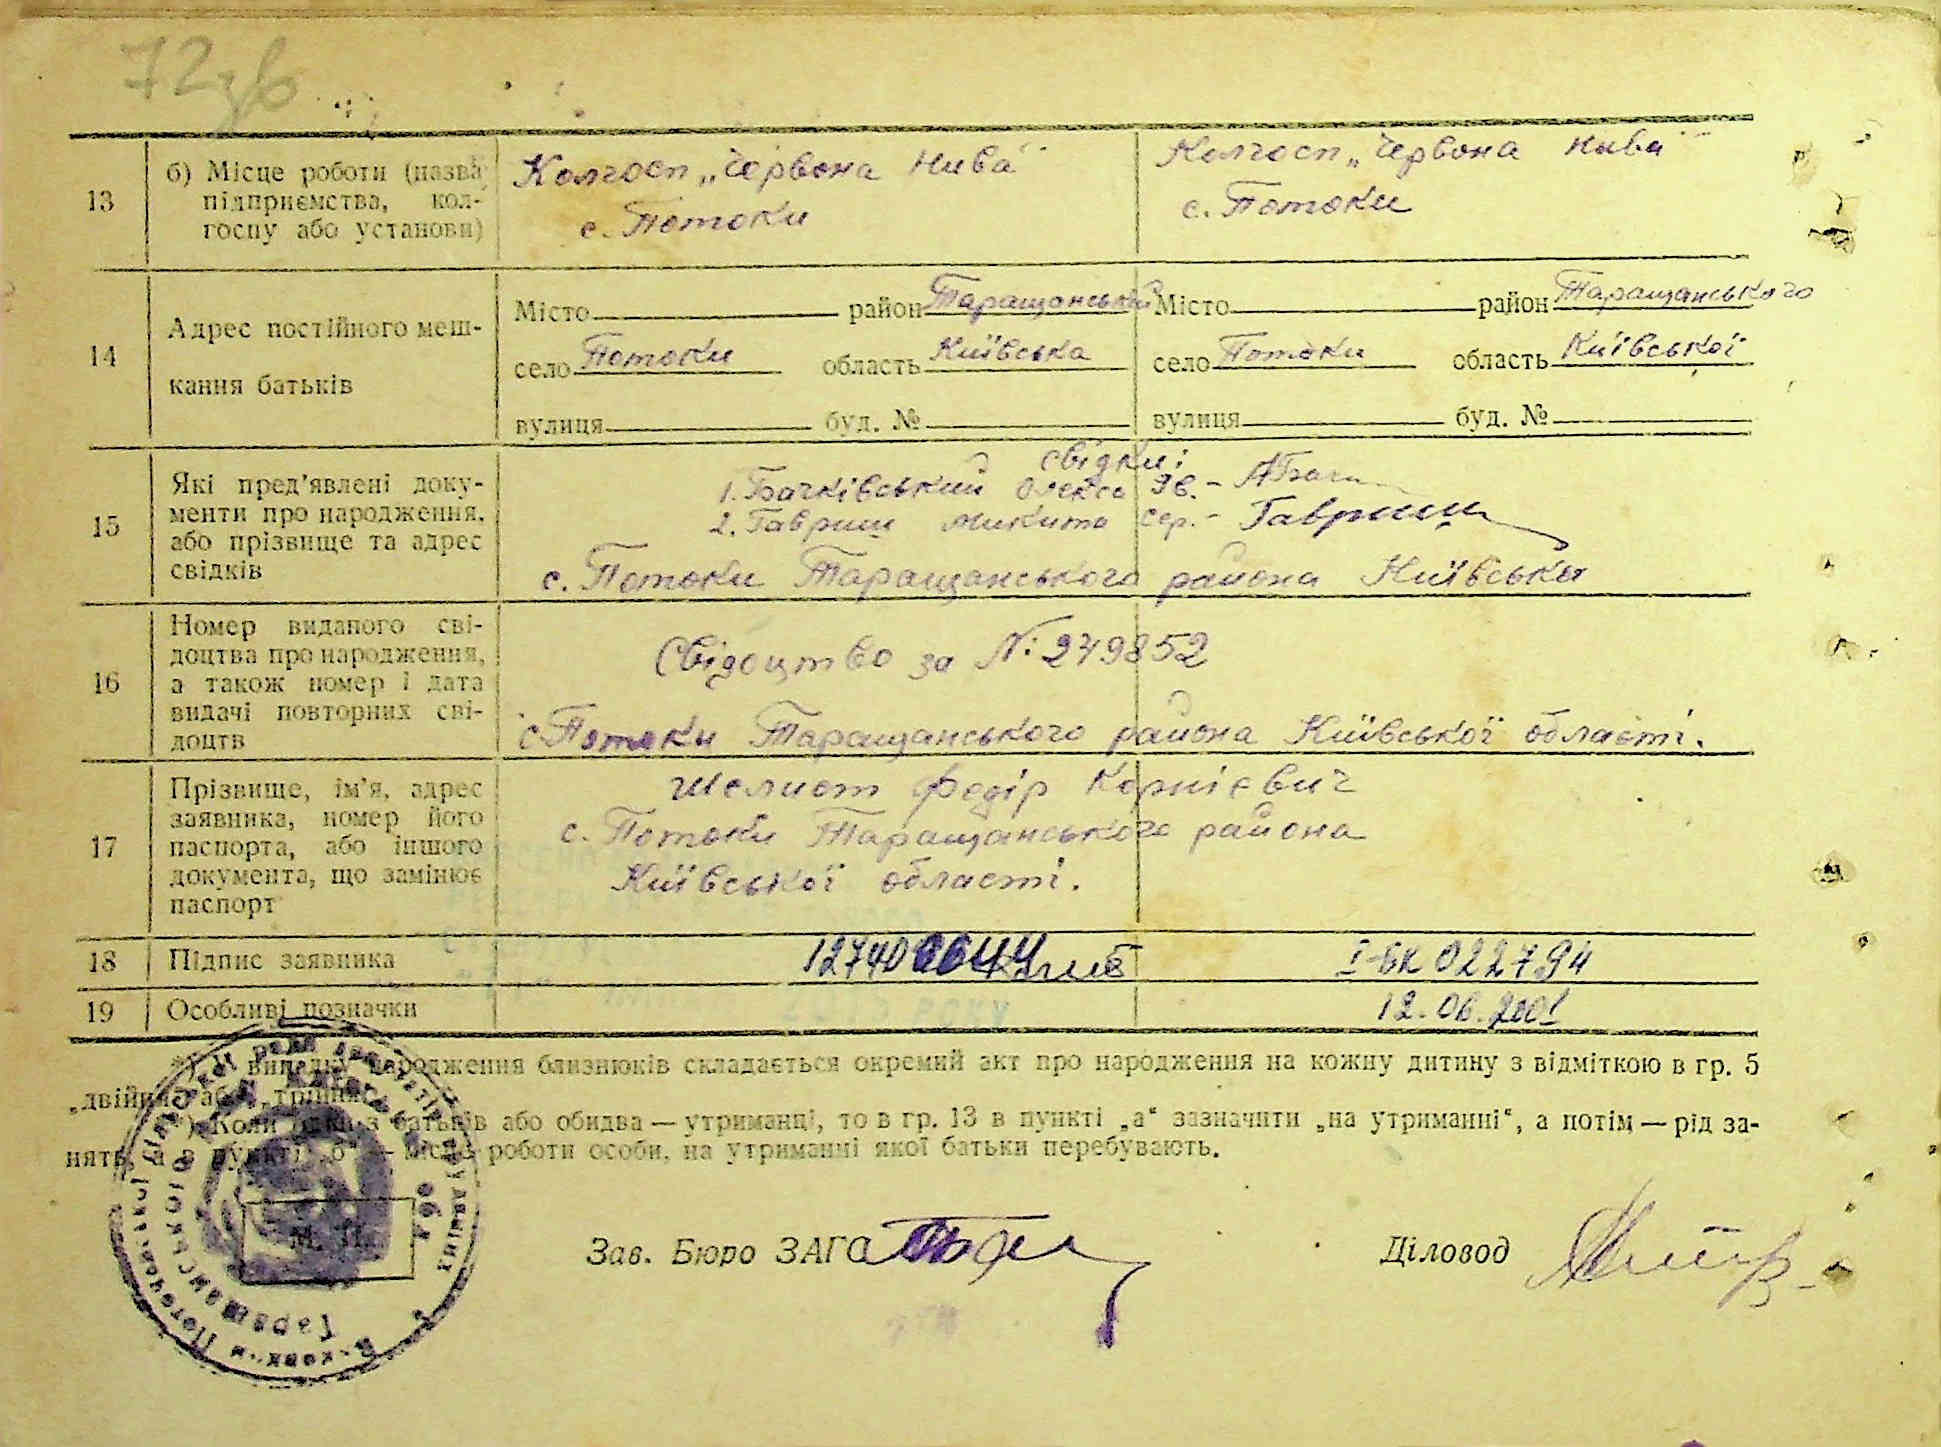 72зв
13
б) Місце роботи (назва
підприємства, кол-
госпу або установи)
Колгосп „Червона Нива"
с. Потоки
Колгосп „Червона Нива"
с. Потоки
14
Адрес постійного меш-
кання батьків
Місто район Таращанський
село Потоки область Київська
вулиця буд. №
Місто район Таращанського
село Потоки область Київської
вулиця буд. №
15
Які пред'явлені доку-
менти про народження,
або прізвище та адрес
свідків
Свідки:
1. Бачківський Олекса Ів. -
2. Гавриш Микита Сер. - Гавриш
с. Потоки Таращанського района Київська
16
Номер виданого сві-
доцтва про народження,
а також номер і дата
видачі повторних сві-
доцтв
Свідоцтво за №: 249852
с. Потоки Таращанського района Київської області.
17
Прізвище, ім'я, адрес
заявника, номер його
паспорта, або іншого
документа, що замінює
паспорт
Шелист Федір Корнієвич
с. Потоки Таращанського района
Київської області.
18
Підпис заявника
I-БК 022794
19
Особливі позначки
12.06.2001
*) У випадку народження близнюків складається окремий акт про народження на кожну дитину з відміткою в гр. 5
„двійня" або „трійня".
) Коли один з батьків або обидва — утриманці, то в гр. 13 в пункті „а" зазначити „на утриманні", а потім — рід за-
нять, а в пункті „б" — місце роботи особи, на утриманні якої батьки перебувають.
М. П.
Зав. Бюро ЗАГС
Діловод